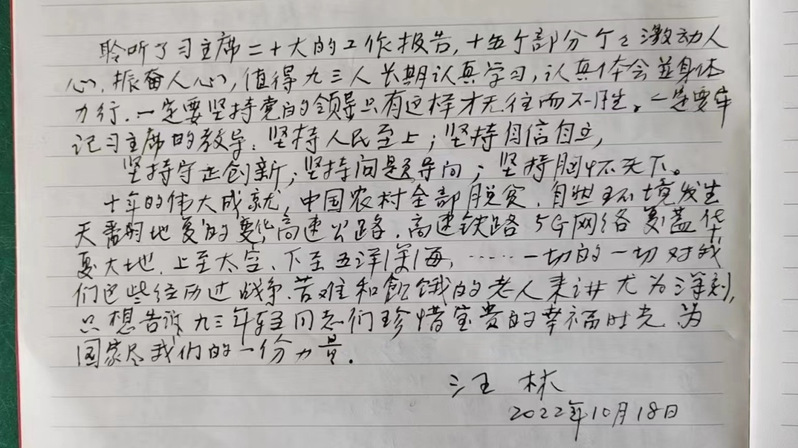 聆听了习主席二十大的工作报告,十五个部分个个激动人
心,振奋人心,值得九三人长期认真学习,认真体会并身体
力行.一定要坚持党的领导只有这样才无往而不胜。一定要牢
记习主席的教导:坚持人民至上;坚持自信自立,
坚持守正创新;坚持问题导向;坚持胸怀天下。
十年的伟大成就,中国农村全部脱贫.自然环境发生
天翻地复的变化高速公路.高速铁路5G网络复盖华
夏大地.上至太空、下至五洋深海,……一切的一切对我
们这些经历过战争、苦难和饥饿的老人来讲尤为深刻,
只想告诉九三年轻同志们珍惜宝贵的幸福时光为
国家尽我们的一份力量.
汪林
2022年10月18日